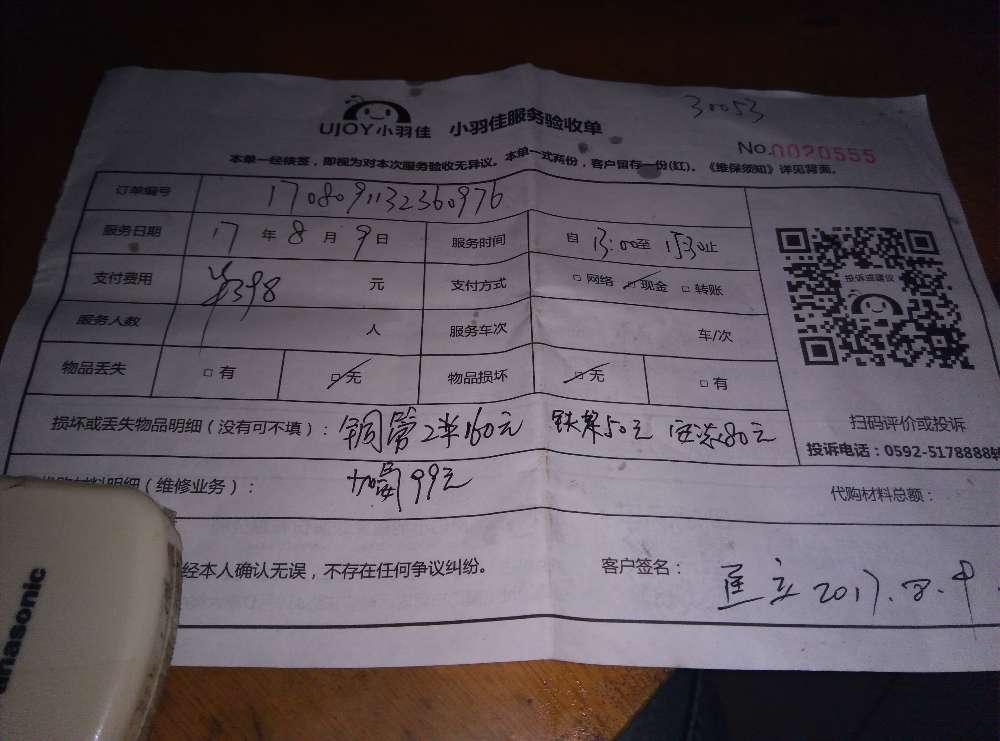 30053
UJOY小羽佳 小羽佳服务验收单
No.0020555
本单一经核签，即视为对本次服务验收无异议。本单一式两份，客户留存一份(红)。《维保须知》详见背面。
订单编号 1708091132360976
服务日期 17 年 8 月 9 日 服务时间 自 13:00至 15:30止
支付费用 398 元 支付方式 □ 网络 □ 现金 □ 转账
投诉或建议
服务人数 人 服务车次 车/次
物品丢失 □ 有 □ 无 物品损坏 □ 无 □ 有
扫码评价或投诉
损坏或丢失物品明细（没有可不填）： 铜管2米160元 铁架50元 安装80元
投诉电话：0592-5178888转
代购材料明细（维修业务）： 加氟99元 代购材料总额：
经本人确认无误，不存在任何争议纠纷。 客户签名： 匡立 2017.8.9
anasonic